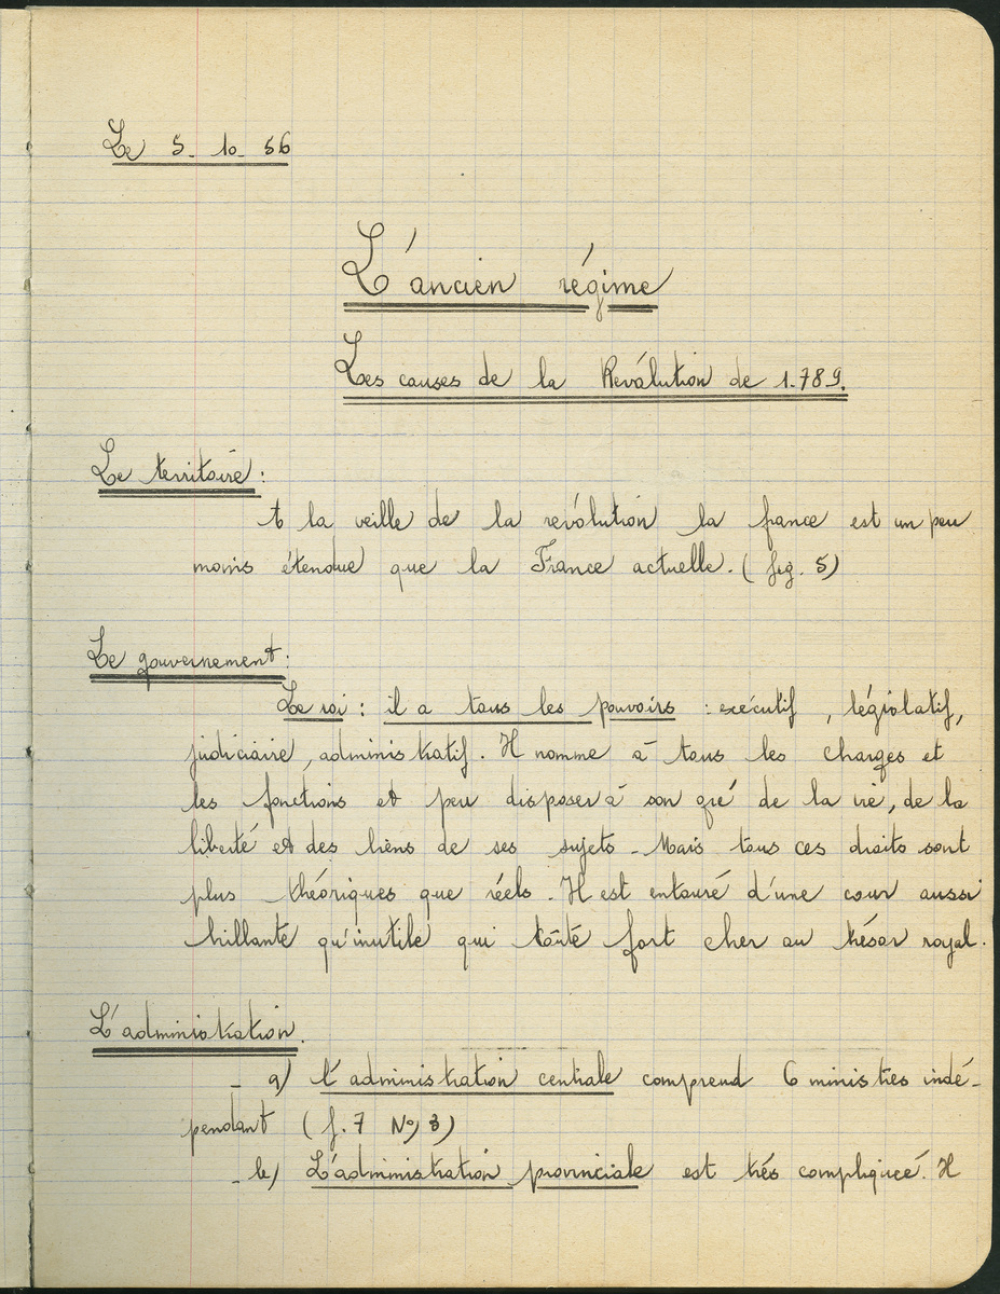 Le 5. 10. 56
L'ancien régime
Les causes de la Révolution de 1.789.
Le territoire :
A la veille de la révolution la france est un peu
moins étendue que la France actuelle. (fig. 5)
Le gouvernement :
Le roi : il a tous les pouvoirs : exécutif, législatif,
judiciaire, administratif. Il nomme à tous les charges et
les fonctions et peu disposer à son gré de la vie, de la
liberté et des biens de ses sujets - Mais tous ces droits sont
plus théoriques que réels. Il est entouré d'une cour aussi
brillante qu'inutile qui coûte fort cher au trésor royal.
L'administration.
- a) l'administration centrale comprend 6 ministres indé-
pendant (f. 7 No) 3)
- b) L'administration provinciale est très compliquée. Il